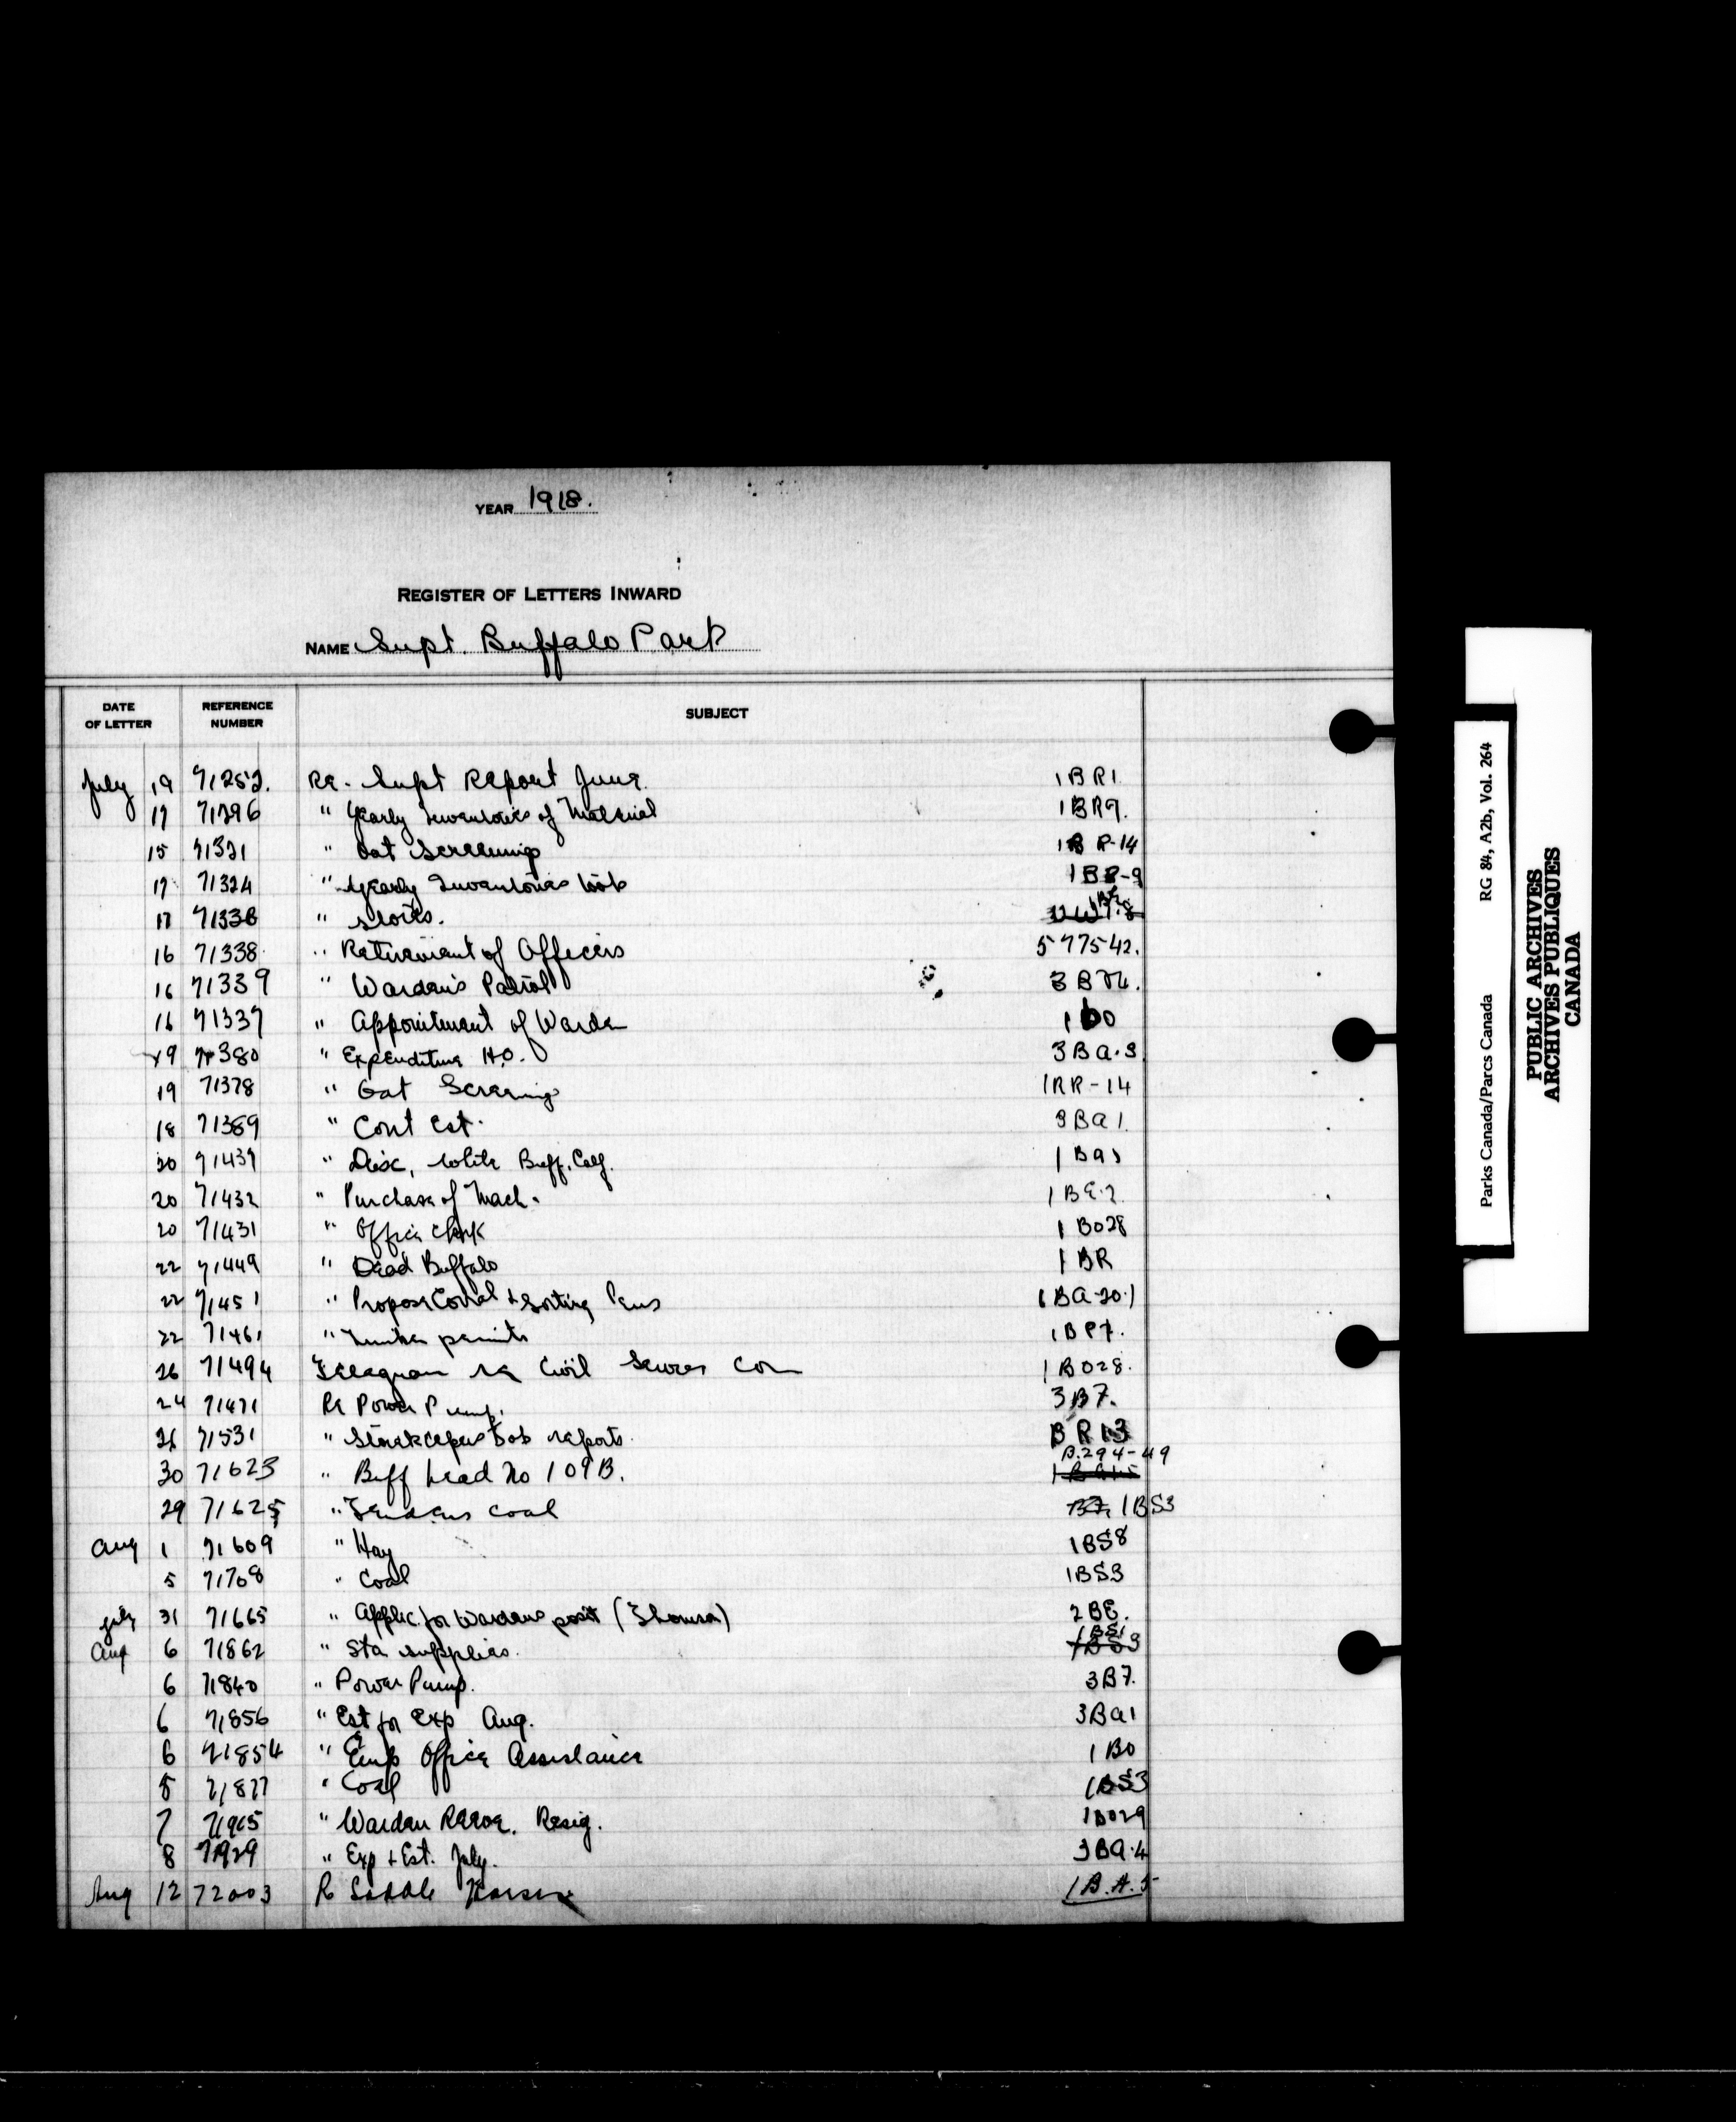 YEAR 1918.
REGISTER OF LETTERS INWARD
NAME Supt. Buffalo Park
DATE OF LETTER REFERENCE NUMBER SUBJECT
July 19 71252. Re. Supt Report June. 1BR1
17 71296 " Yearly Inventories of Material 1BR9.
15 71321 " Oat Screenings 1BR-14
17 71324 " Yearly Inventories 1BR-9
17 " Stores.
16 71338 " Retirement of Officers 577542.
16 71339 " Warden's Patrol
16 71337 " Appointment of Warden
19 71380 " Expenditure H.O. 3Ba.3
19 71378 " Oat Screenings 1RR-14
18 71389 " Cont Est. 3Ba1
20 71437 " Disc, white Buff. Calf.
20 71432 " Purchase of Mach. 1BE.2
20 71431 " Office Clerk 1BO28
22 71449 " Dead Buffalo 1BR
22 71451 " Propose Corral & Sorting Pens 1BA-20.1
22 71461 " Timber permits 1BP7.
26 71494 Telegram re Civil Service Com 1BO28.
24 71471 Re Power Pump. 3B7.
26 71531 " Storekeepers reports BR13
30 71623 " Buff head No 109B. B.294-49
29 71625 " Tenders Coal B7, 1BS3
Aug 1 71609 " Hay 1BS8
5 71708 " Coal 1BS3
July 31 71665 " Applic. for Wardens posit (Thomson) 2BE.
Aug 6 71862 " Sta supplies. 1BS1
6 71840 " Power Pump. 3B7.
6 71856 " Est for Exp Aug. 3Ba1
6 71854 " Emp Office Assistance 1BO
5 71877 " Coal 1BS3
7 71965 " Warden Resig. 1BO29
8 71929 " Exp & Est. July. 3BA.4
Aug 12 72003 Re Saddle Horses 1B.A.5
Parks Canada/Parcs Canada RG 84, A2b, Vol. 264
PUBLIC ARCHIVES
ARCHIVES PUBLIQUES
CANADA